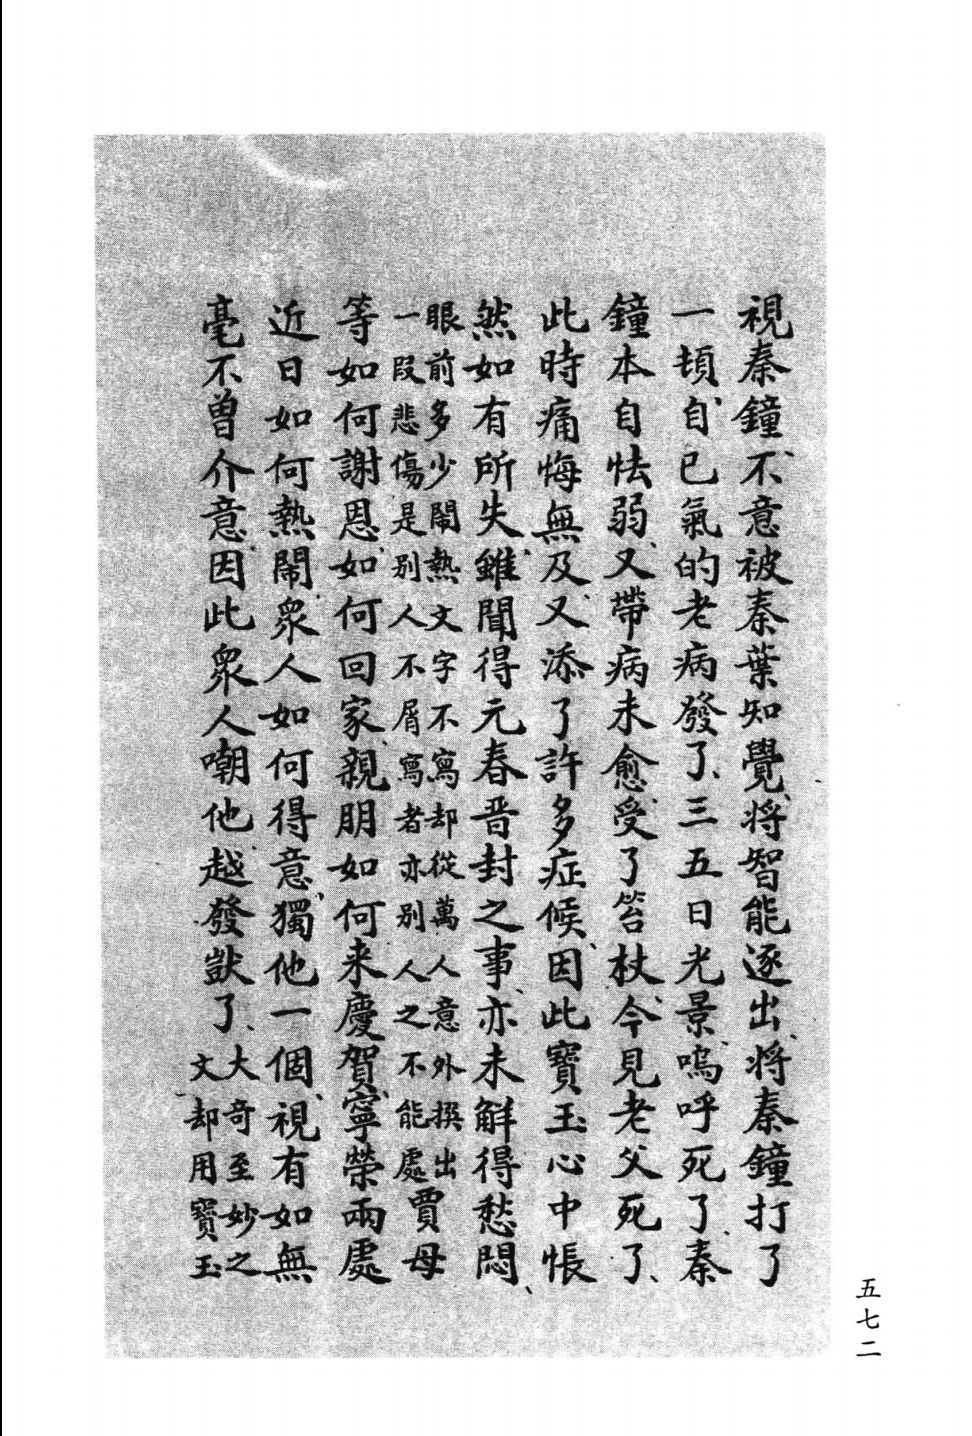 視秦鐘不意被秦葉知覺将智能逐出将秦鐘打了
一頓自己氣的老病發了三五日光景嗚呼死了秦
鐘本自怯弱又帶病未愈受了笞杖今見老父死了
此時痛悔無及又添了許多症候因此寳玉心中悵
然如有所失雖聞得元春晋封之事亦未解得愁悶
眼前多少鬧熱文字不寫却從萬人意外撰出
一段悲傷是别人不屑寫者亦别人之不能處
賈母
等如何謝恩如何回家親朋如何来慶賀寧榮兩處
近日如何熱鬧衆人如何得意獨他一個視有如無
毫不曾介意因此衆人嘲他越發獃了
大奇至妙之
文却用寳玉
五七二